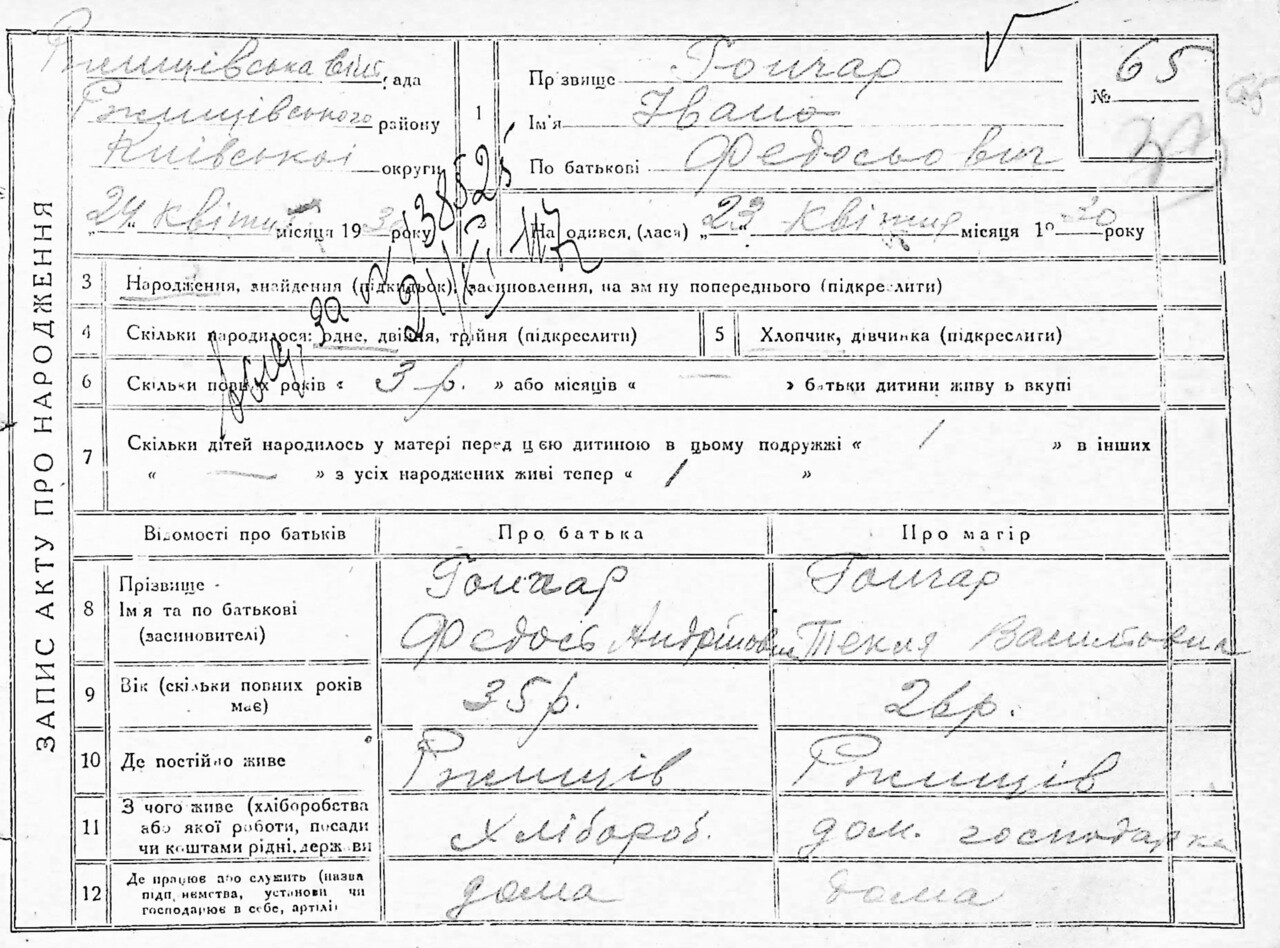 ЗАПИС АКТУ ПРО НАРОДЖЕННЯ
Ржищівська рада
Ржищівського району
Київської округи
„24“ квітня місяця 1930 року
1
Прізвище Гончар
Ім'я Івано
По батькові Федосьович
№ 65
2
Народився, (лася) „23“ квітня місяця 1930 року
3 Народження, знайдення (підкидьок), засиновлення, на зміну попереднього (підкреслити)
4 Скільки народилося: одне, двійня, трійня (підкреслити)
5 Хлопчик, дівчинка (підкреслити)
6 Скільки повних років « 3 р. » або місяців « — » батьки дитини живуть вкупі
7 Скільки дітей народилось у матері перед цією дитиною в цьому подружжі « 1 » в інших
« — » з усіх народжених живі тепер « 1 »
за № 138525
21/XI 47
Відомості про батьків Про батька Про матір
8 Прізвище Гончар Гончар
Ім'я та по батькові Федось Андрійович Текля Василівна
(засиновителі)
9 Вік (скільки повних років має) 35 р. 26 р.
10 Де постійно живе Ржищів Ржищів
11 З чого живе (хліборобства
або якої роботи, посади Хлібороб. дом. господарка
чи коштами рідні, держави
12 Де працює або служить (назва
підприємства, установи чи дома дома
господарює в себе, артілі)